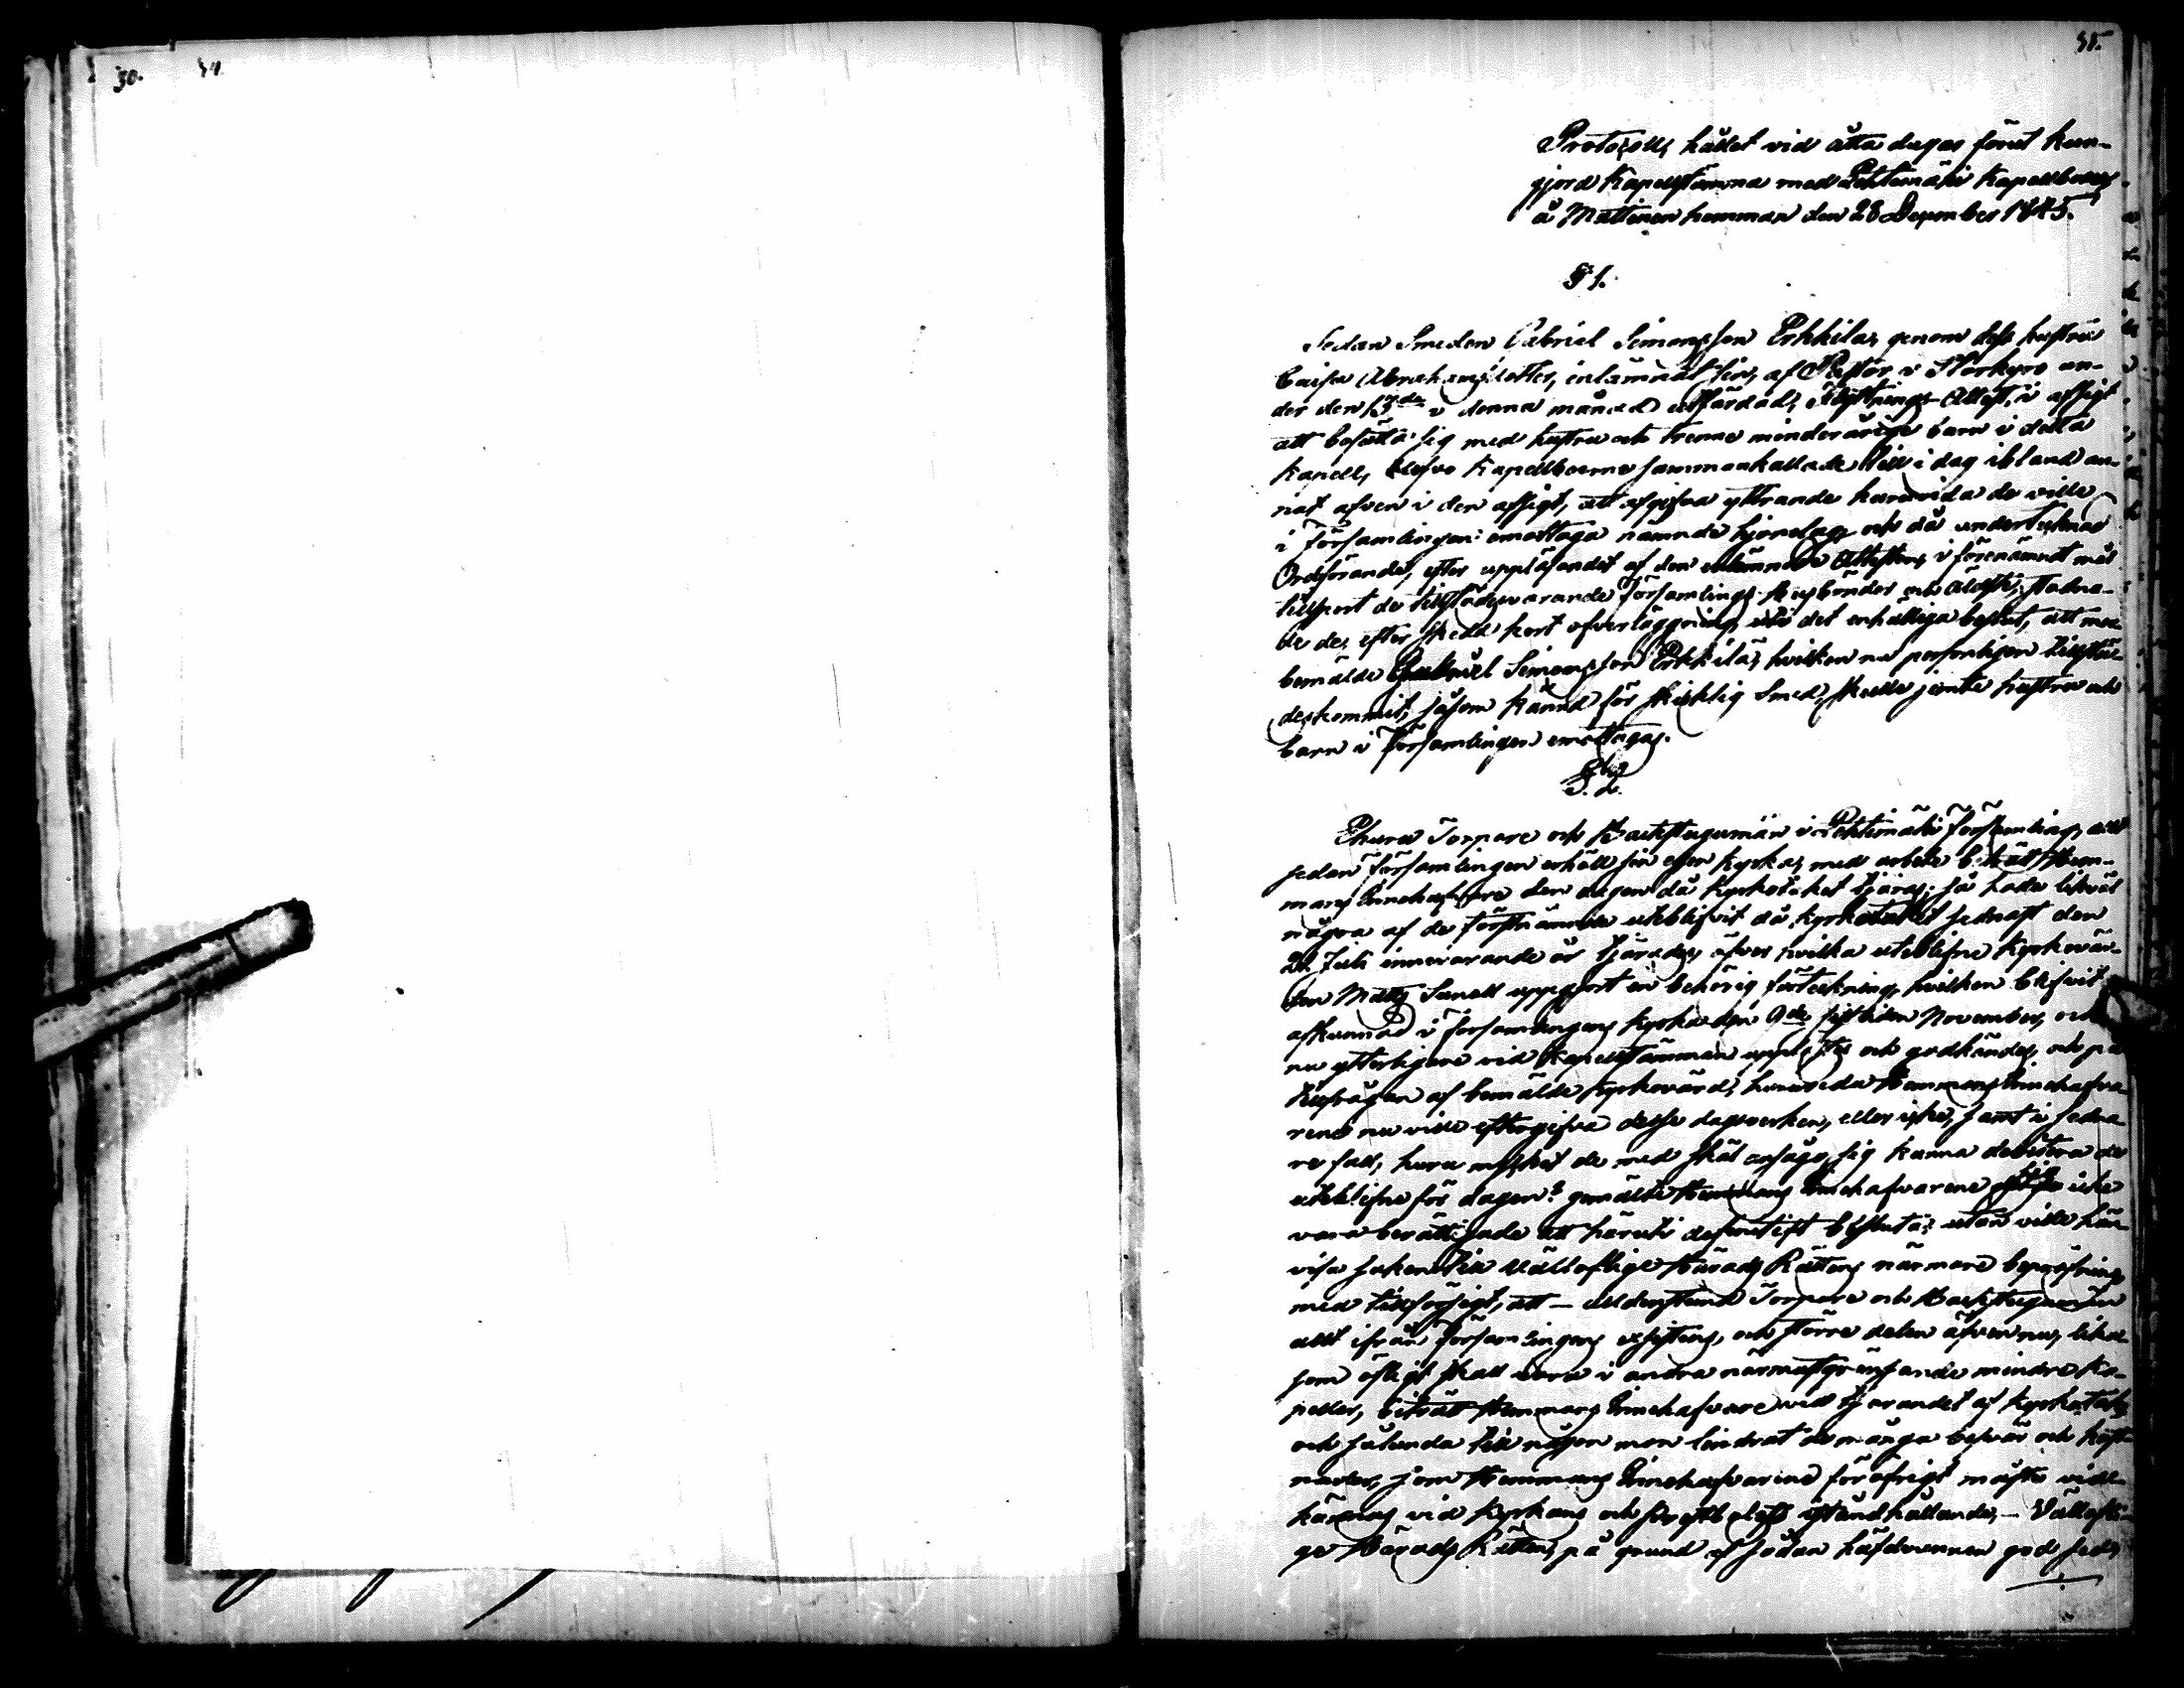 30. 54
55.
Protocoll, hållet vid åtta dagar förut kun-
gjord Kapellstämma med Pehtimäki Kapellboer,
å Mattinen hemman den 28 December 1845.
§ 1.
Sedan Smeden Gabriel Simonsson Erkkilä, genom dess hustru
Caisa Abrahamsdotter, inlämnat sin, af Pastor i Storkyro un-
der den 13de i denna månad utfärdad, Flyttnings-Attest, i afsigt
att bosätta sig med hustru och trenne minderårige barn i detta
Kapell, blefvo Kapellboerne sammankallade till i dag ibland an-
nat äfven i den afsigt, att afgifva yttrande huruvida de ville
i Församlingen emottaga nämnde hjonelag, och då undertecknad
Ordförande, efter uppläsandet af den inlämnade Attesten, i förenämndt mål
tillsport de tillstädesvarande Församlings Husbönder och Äldste, stadna-
de de, efter skedd kort öfverläggning, uti det enhälliga beslut, att mer-
bemälde Gabriel Simonsson Erkkilä, hvilken nu personligen tillstä-
deskommit, såsom känd för skicklig Smed, skulle jemte hustru och
barn i Församlingen emottagas.
§. 2.
Ehuru Torpare och Backstugumän i Pehtimäki Församling, allt
sedan Församlingen erhöll sin egen Kyrka, med arbete biträdt Hem-
mans Innehafvare den dagen då Kyrkotaket tjäras; så hade likväl
några af de förstnämnde uteblifvit då Kyrkotaket sednast den
21 Juli innevarande år tjärades, öfver hvilka uteblifne Kyrkovär-
den Matts Sunell uppgjort en behörig förteckning, hvilken blifvit
afkunnad i Församlingens Kyrka den 9de sistliden November, och
nu ytterligare vid Kapellstämman upplästes och godkändes, och på
tillfrågan af bemälde Kyrkovärd, huruvida Hemmans Innehafva-
rene nu ville eftergifva desse dagsverken, eller icke, samt i sedna-
re fall, huru mycket de med skäl ansågo sig kunna debitera de
uteblifne för dagen? gemälte Hemmans Innehafvarene sig icke
vara berättigade att häruti definitift besluta; utan ville hän-
visa saken till Vällofliga Härads Rättens närmare bepröfning
med tillförsigt, att – alldenstund Torpare och Backstugumän
allt ifrån Församlingens stiftning, och större delen äfven nu, lika-
som öfligt skall vara i andra närmastgränsande mindre Ka-
peller, biträdt Hemmans Innehafvare vid tjärandet af Kyrkotak,
och sålunda till någon mon lindrat de många besvär och kost-
nader, som Hemmans Innehafvarene för öfrigt måste vid-
kännas vid Kyrkans och prestbolets iståndhållande, – Vällofli-
ge Härads Rätten, på grund af sådan häfdvunnen god sed,